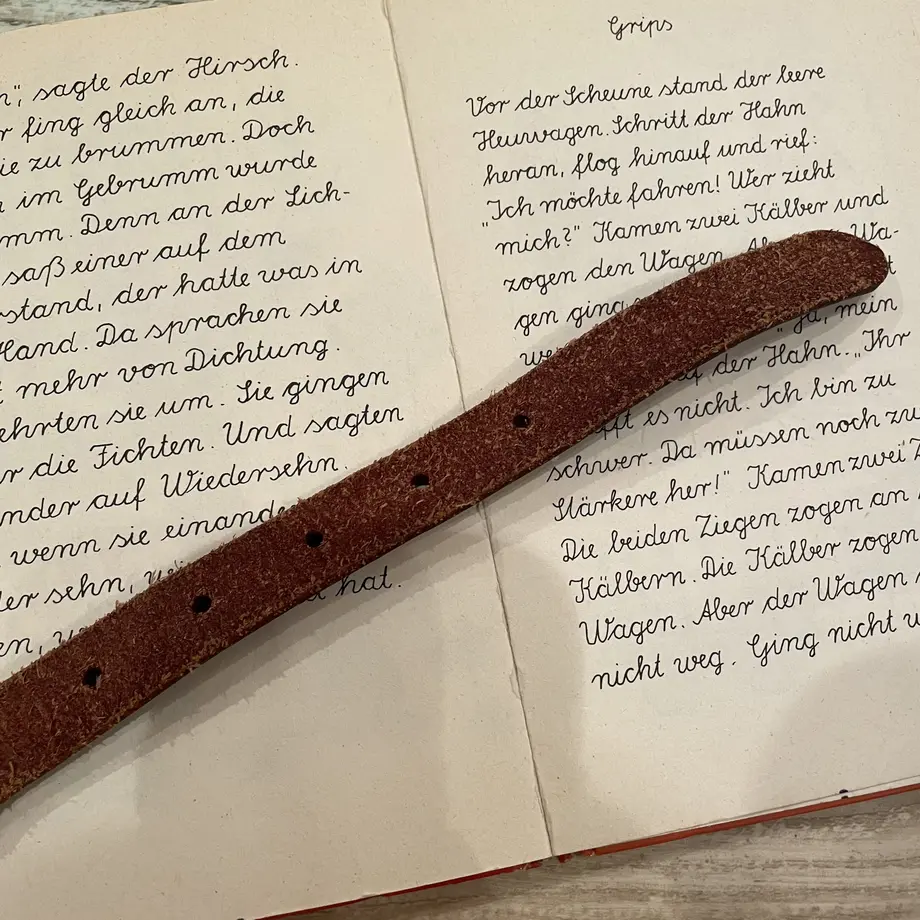 sagte der Hirsch.
fing gleich an, die
zu brummen. Doch
im Gebrumm wurde
Denn an der Lich-
saß einer auf dem
der hatte was in
Hand. Da sprachen sie
mehr von Dichtung.
sie um. Sie gingen
die Fichten. Und sagten
auf Wiedersehn.
wenn sie
sehn,
hat.
Grips
Vor der Scheune stand der leere
Heuwagen. Schritt der Hahn
heran, flog hinauf und rief:
„Ich möchte fahren! Wer zieht
mich?" Kamen zwei Kälber und
zogen den Wagen. Wa-
gen ging
ja, mein
der Hahn. „Ihr
es nicht. Ich bin zu
schwer. Da müssen noch zwei
Stärkere her!" Kamen zwei
Die beiden Ziegen zogen an
Kälbern. Die Kälber zogen
Wagen. Aber der Wagen
nicht weg. Ging nicht